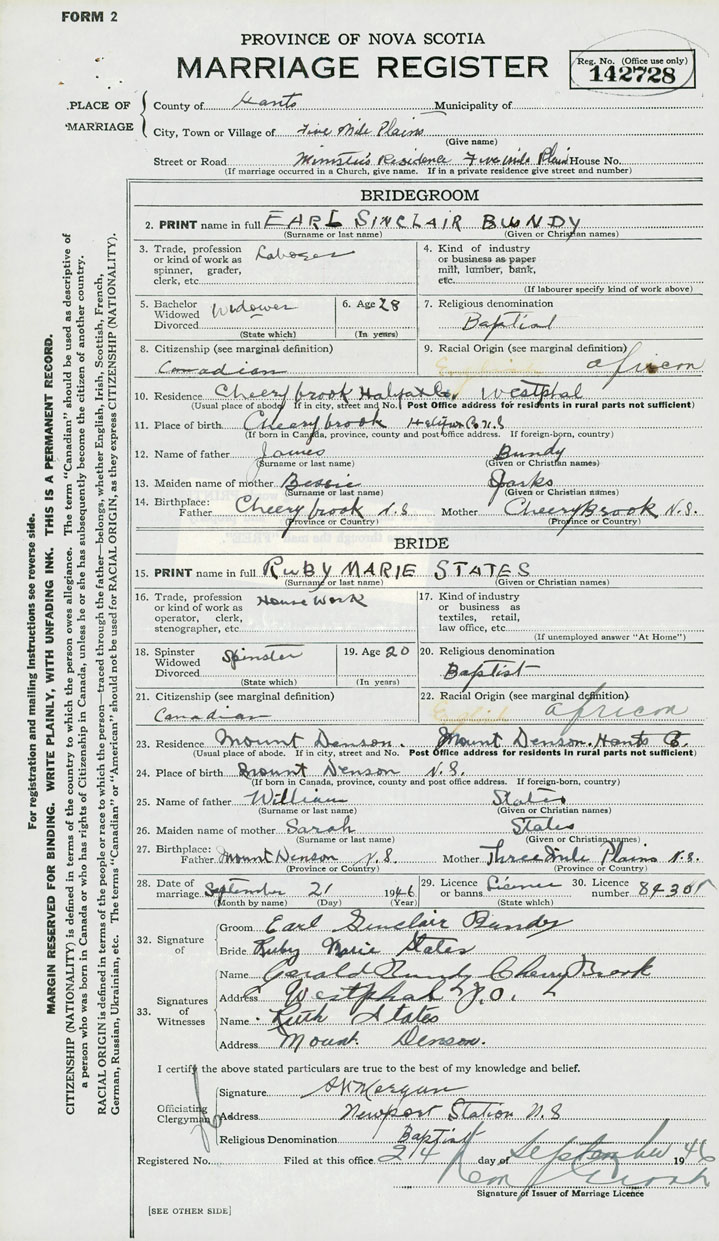 FORM 2
PROVINCE OF NOVA SCOTIA
MARRIAGE REGISTER
Reg. No. (Office use only)
142728
PLACE OF MARRIAGE
County of Hants Municipality of
City, Town or Village of Five Mile Plains
(Give name)
Street or Road Minister's Residence Five Mile Plain House No.
(If marriage occurred in a Church, give name. If in a private residence give street and number)
BRIDEGROOM
2. PRINT name in full EARL SINCLAIR BUNDY
(Surname or last name) (Given or Christian names)
3. Trade, profession or kind of work as spinner, grader, clerk, etc. Laborer
4. Kind of industry or business as paper mill, lumber, bank, etc.
(If labourer specify kind of work above)
5. Bachelor Widowed Divorced Widower
(State which)
6. Age 28
(In years)
7. Religious denomination
Baptist
8. Citizenship (see marginal definition)
Canadian
9. Racial Origin (see marginal definition)
English african
10. Residence Cheerybrook Halifax Co. Westphal
(Usual place of abode. If in city, street and No. Post Office address for residents in rural parts not sufficient)
11. Place of birth Cheerybrook Halifax Co N.S
(If born in Canada, province, county and post office address. If foreign-born, country)
12. Name of father James Bundy
(Surname or last name) (Given or Christian names)
13. Maiden name of mother Bessie
(Surname or last name) (Given or Christian names)
14. Birthplace: Father Cheerybrook N.S Mother CheeryBrook N.S.
(Province or Country) (Province or Country)
BRIDE
15. PRINT name in full RUBY MARIE STATES
(Surname or last name) (Given or Christian names)
16. Trade, profession or kind of work as operator, clerk, stenographer, etc House Work
17. Kind of industry or business as textiles, retail, law office, etc.
(If unemployed answer "At Home")
18. Spinster Widowed Divorced Spinster
(State which)
19. Age 20
(In years)
20. Religious denomination
Baptist
21. Citizenship (see marginal definition)
Canadian
22. Racial Origin (see marginal definition)
English african
23. Residence Mount Denson. Mount Denson. Hants Co.
(Usual place of abode. If in city, street and No. Post Office address for residents in rural parts not sufficient)
24. Place of birth Mount Denson N.S.
(If born in Canada, province, county and post office address. If foreign-born, country)
25. Name of father William States
(Surname or last name) (Given or Christian names)
26. Maiden name of mother Sarah States
(Surname or last name) (Given or Christian names)
27. Birthplace: Father Mount Denson N.S. Mother Three Mile Plains N.S.
(Province or Country) (Province or Country)
28. Date of marriage September 21 1946
(Month by name) (Day) (Year)
29. Licence or banns. License
(State which)
30. Licence number 84305
32. Signature of
Groom Earl Sinclair Bundy
Bride Ruby Marie States
33. Signatures of Witnesses
Name Gerald Bundy Cherry Brook
Address Westphal P.O.
Name Ruth States
Address Mount Denson.
I certify the above stated particulars are true to the best of my knowledge and belief.
Officiating Clergyman
Signature
Address Newport Station N.S
Religious Denomination Baptist
Registered No. Filed at this office 24 day of September 1946
Signature of Issuer of Marriage Licence
[SEE OTHER SIDE]
For registration and mailing instructions see reverse side.
MARGIN RESERVED FOR BINDING. WRITE PLAINLY, WITH UNFADING INK. THIS IS A PERMANENT RECORD.
CITIZENSHIP (NATIONALITY) is defined in terms of the country to which the person owes allegiance. The term "Canadian" should be used as descriptive of
a person who was born in Canada or who has rights of Citizenship in Canada, unless he or she has subsequently become the citizen of another country.
RACIAL ORIGIN is defined in terms of the people or race to which the person—traced through the father—belongs, whether English, Irish, Scottish, French,
German, Russian, Ukrainian, etc. The terms "Canadian" or "American" should not be used for RACIAL ORIGIN, as they express CITIZENSHIP (NATIONALITY).